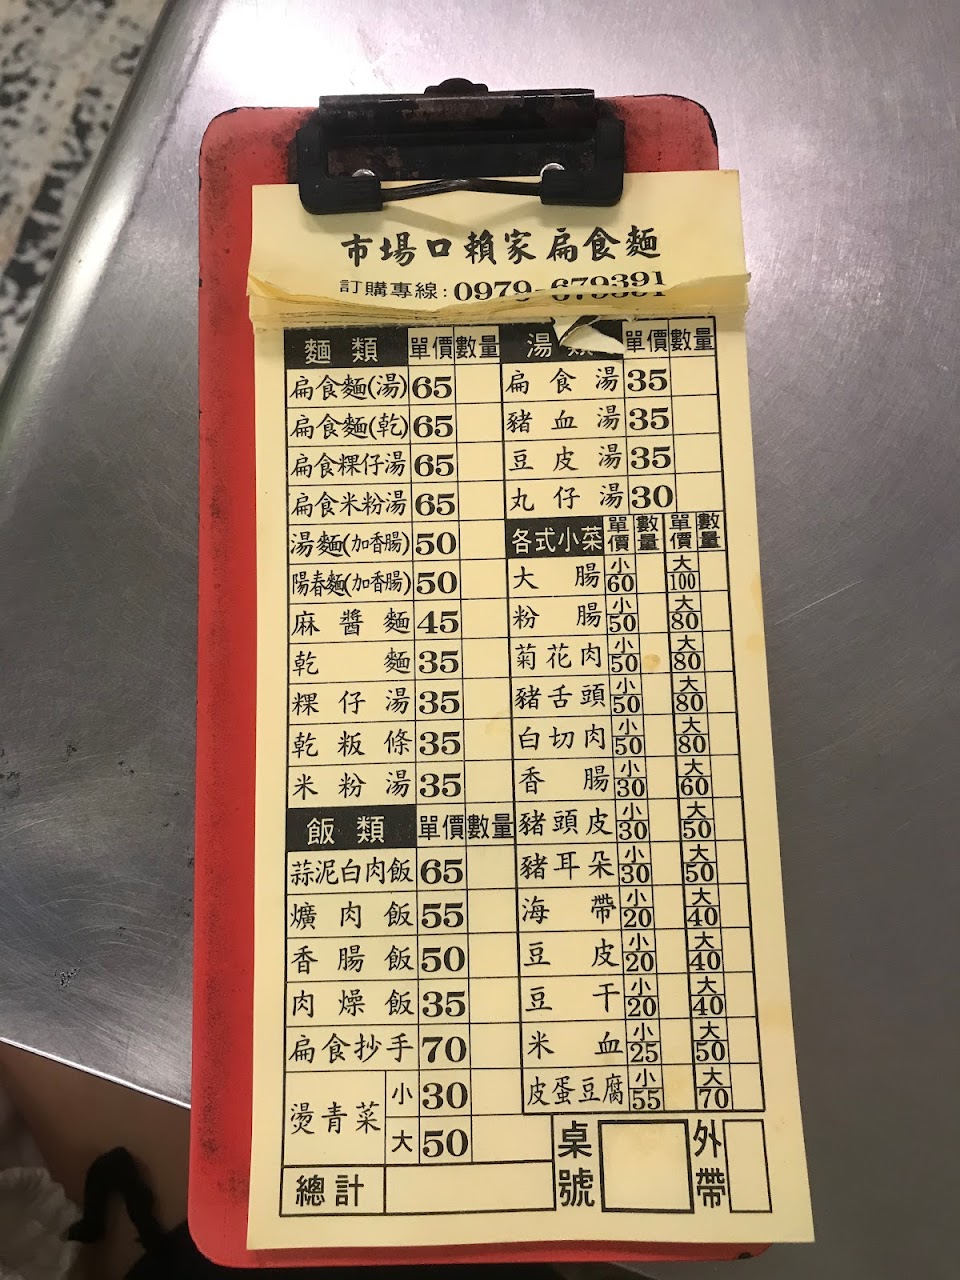 市場口賴家扁食麵
訂購專線:0979-679391
麵類 單價 數量
扁食麵(湯) 65
扁食麵(乾) 65
扁食粿仔湯 65
扁食米粉湯 65
湯麵(加香腸) 50
陽春麵(加香腸) 50
麻醬麵 45
乾麵 35
粿仔湯 35
乾粄條 35
米粉湯 35
飯類 單價 數量
蒜泥白肉飯 65
爌肉飯 55
香腸飯 50
肉燥飯 35
扁食抄手 70
燙青菜 小 30
大 50
總計
湯類 單價 數量
扁食湯 35
豬血湯 35
豆皮湯 35
丸仔湯 30
各式小菜 單價 數量 單價 數量
大腸 小60 大100
粉腸 小50 大80
菊花肉 小50 大80
豬舌頭 小50 大80
白切肉 小50 大80
香腸 小30 大60
豬頭皮 小30 大50
豬耳朵 小30 大50
海帶 小20 大40
豆皮 小20 大40
豆干 小20 大40
米血 小25 大50
皮蛋豆腐 小55 大70
桌號 外帶